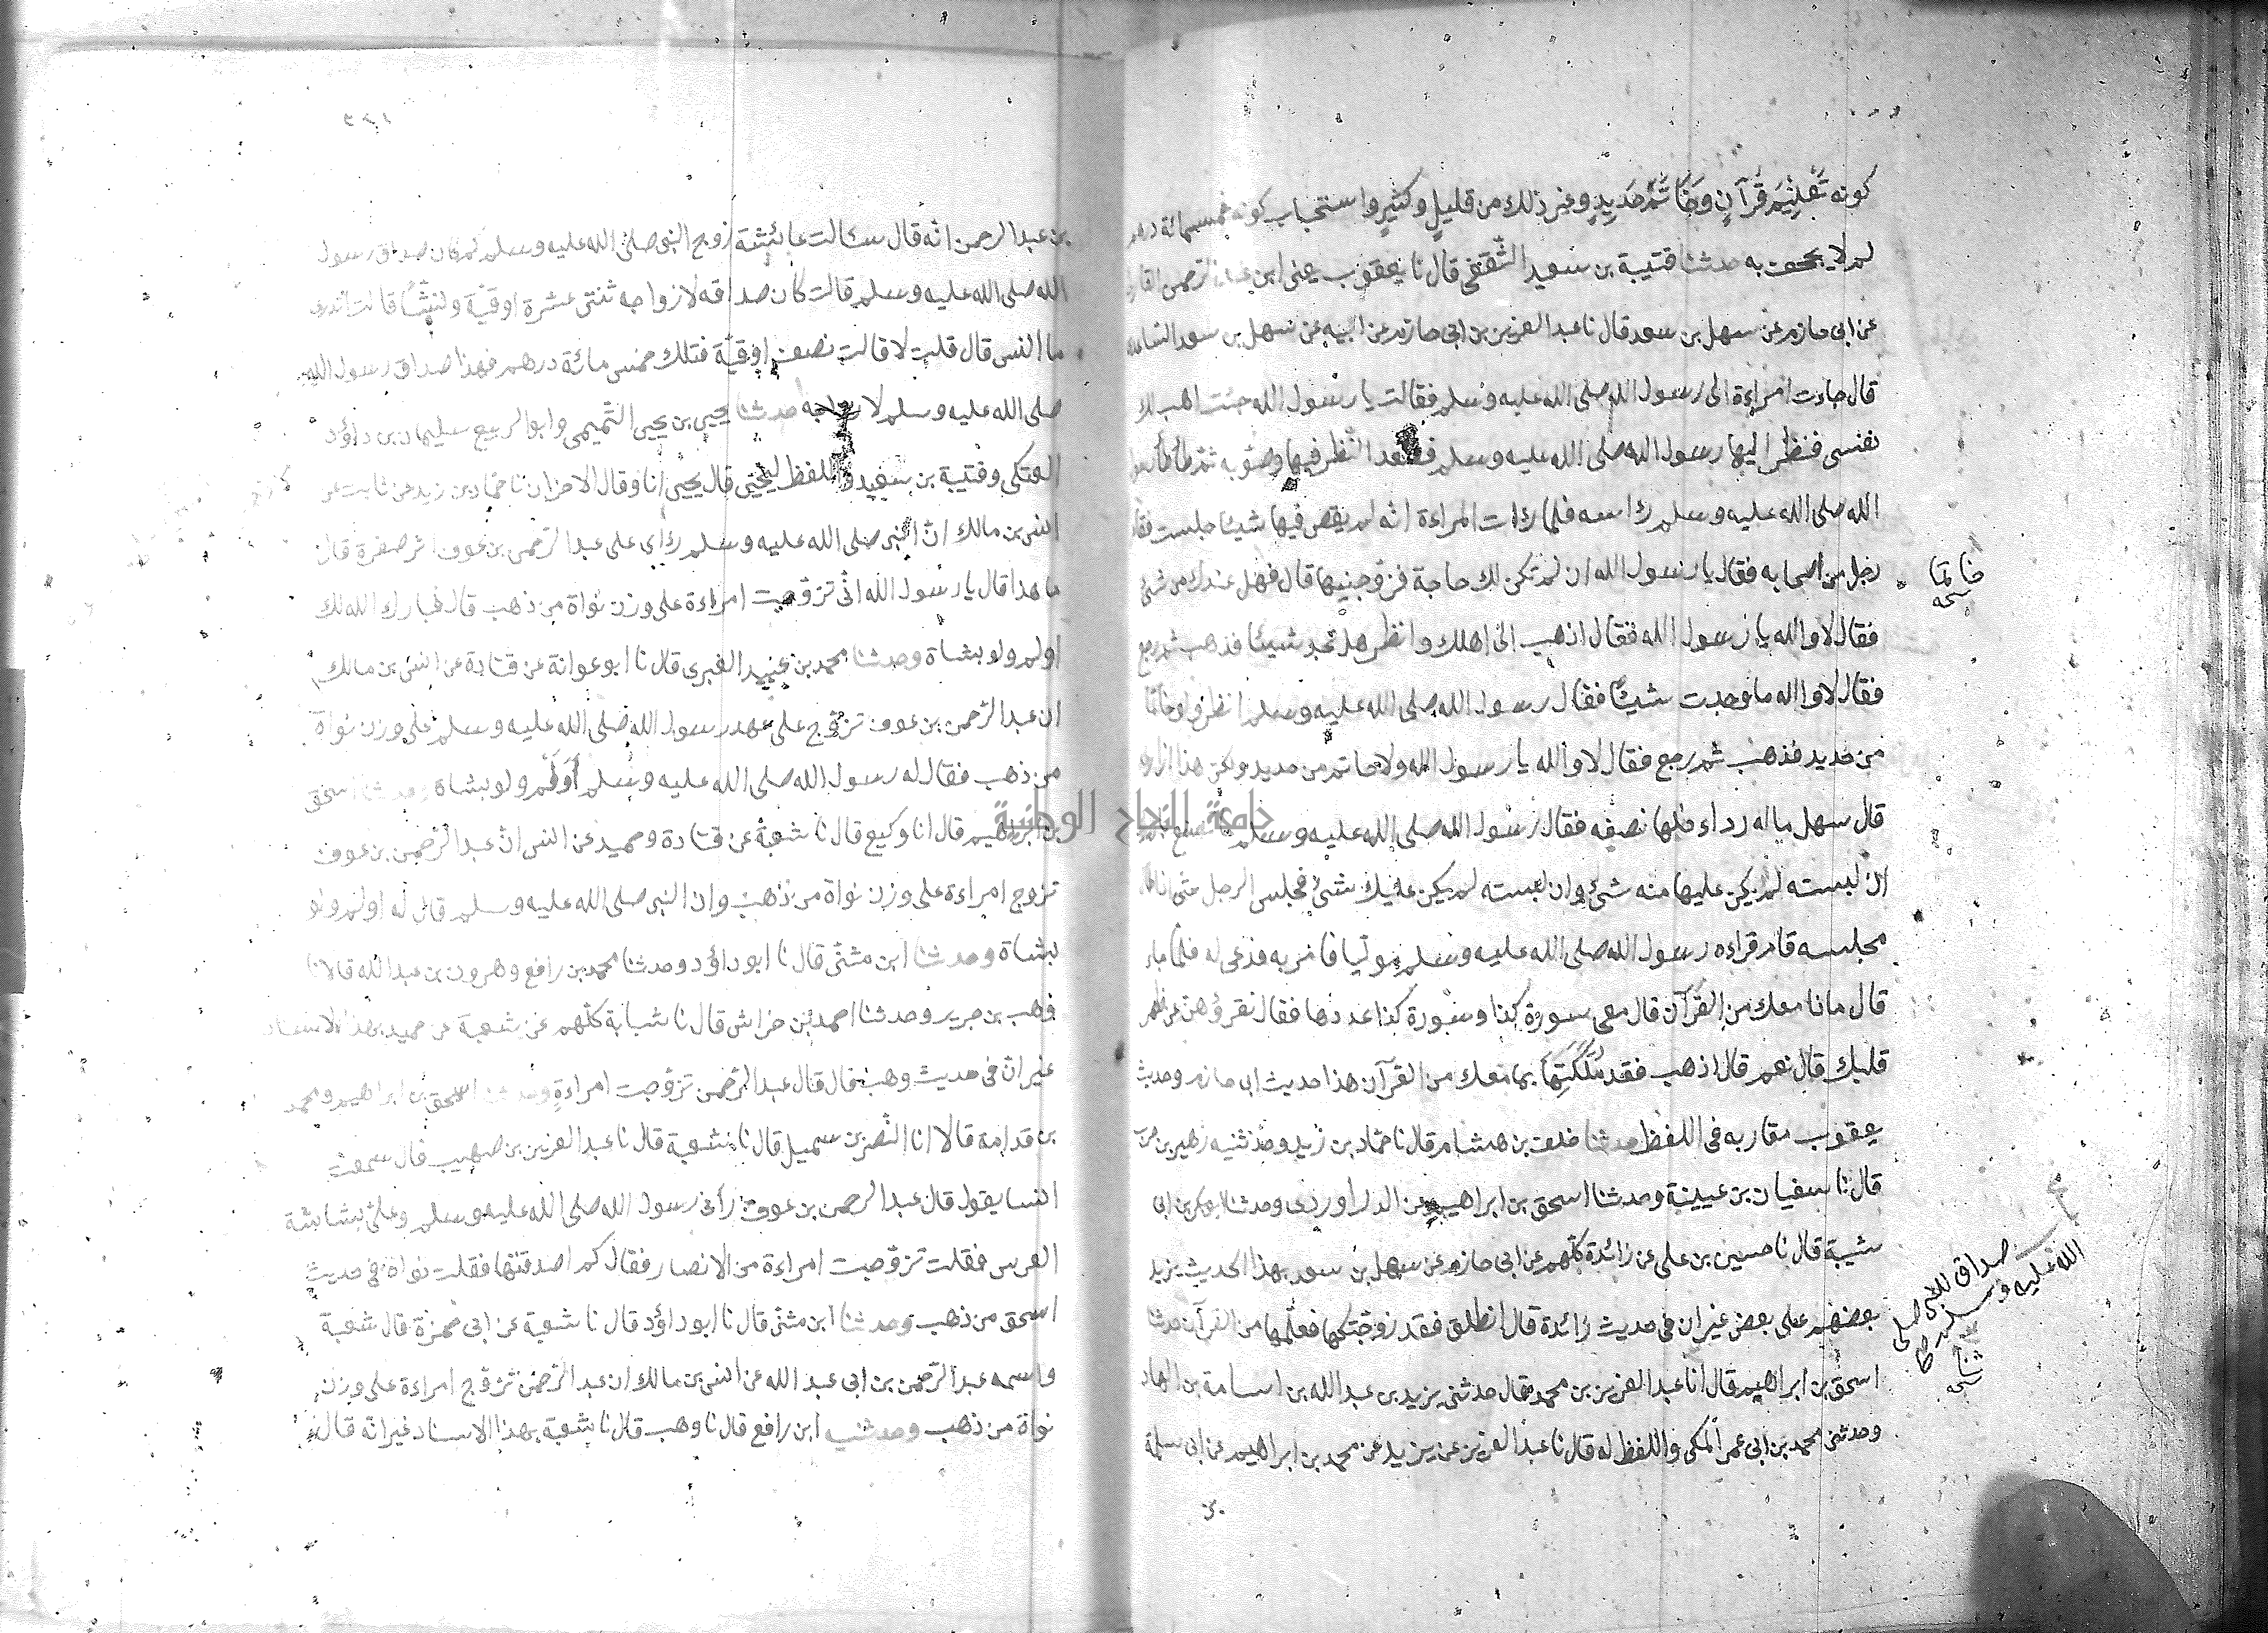 كونه تَعْلِيْمَ قُرآنٍ وخَاتَمَ حَدِيدٍ وغير ذلك من قليلٍ وكثيرٍ واستحباب كونه خمسمائة درهم
لمن لا يجحف به حدثنا قتيبة بن سعيد الثقفي قال نا يعقوب يعني ابن عبد الرحمن القاري
عن ابي حازم عن سهل بن سعد قال نا عبد العزيز بن ابي حازم عن ابيه عن سهل بن سعد الساعدي
قال جاءت امراءة الى رسول الله صلى الله عليه وسلم فقالت يا رسول الله جئت اهب لك
نفسي فنظر اليها رسول الله صلى الله عليه وسلم فصعد النظر فيها وصوبه ثم طأطأ رسول
الله صلى الله عليه وسلم رأسه فلما رأت المراءة انه لم يقض فيها شيئا جلست فقام
رجل من اصحابه فقال يا رسول الله ان لم تكن لك حاجة فزوجنيها قال فهل عندك من شئ
فقال لا والله يا رسول الله فقال اذهب الى اهلك وانظر هل تجد شيئا فذهب ثم رجع
فقال لا والله ما وجدت شيئًا فقال رسول الله صلى الله عليه وسلم انظر ولو خاتما
من حديد فذهب ثم رجع فقال لا والله يا رسول الله ولا خاتم من حديد ولكن هذا ازاري
قال سهل ماله رداء فلها نصفه فقال رسول الله صلى الله عليه وسلم ما تصنع بازارك
ان لبسته لم يكن عليها منه شئ وان لبسته لم يكن عليك شئ فجلس الرجل حتى اذا طال
مجلسه قام فراءه رسول الله صلى الله عليه وسلم موليا فامر به فدعي له فلما جاء
قال ماذا معك من القرآن قال معي سورة كذا وسورة كذا عددها فقال تقرؤهن عن ظهر
قلبك قال نعم قال اذهب فقد مُلِّكْتَهَا بما معك من القرآن هذا حديث ابي حازم وحديث
يعقوب مقاربه في اللفظ حدثنا خلف بن هشام قال نا حماد بن زيد وحدثنيه زهير بن حرب
قال نا سفيان بن عيينة وحدثنا اسحق بن ابراهيم عن الدراوردي وحدثنا ابو بكر بن ابي
شيبة قال نا حسين بن علي عن زائدة كلهم عن ابي حازم عن سهل بن سعد بهذا الحديث يزيد
بعضهم على بعض غير ان في حديث زائدة قال انطلق فقد زوجتكها فعلمها من القرآن حدثنا
اسحق بن ابراهيم قال انا عبد العزيز بن محمد قال حدثني يزيد بن عبد الله بن اسامة بن الهاد
وحدثني محمد بن ابي عمر المكي واللفظ له قال نا عبد العزيز عن يزيد عن محمد بن ابراهيم عن ابي سلمة
خاتما
نسخه
صداق النبي صلى
الله عليه وسلم
بن عبد الرحمن انه قال سئالت عائيشة زوج النبي صلى الله عليه وسلم كم كان صداق رسول
الله صلى الله عليه وسلم قالت كان صداقه لازواجه ثنتى عشرة اوقية ونشًّا قالت اتدري
ما النس قال قلت لا قالت نصف اوقية فتلك خمس مائة درهم فهذا صداق رسول الله
صلى الله عليه وسلم لازواجه حدثنا يحيى بن يحيى التميمي وابو الربيع سليمان بن داؤد
العتكي وقتيبة بن سعيد واللفظ ليحيى قال يحيى انا وقال الاخران نا حماد بن زيد عن ثابت عن
انس بن مالك ان النبي صلى الله عليه وسلم رأى على عبد الرحمن بن عوف اثر صفرة قال
ما هذا قال يا رسول الله انى تزوجت امراءة على وزن نواة من ذهب قال فبارك الله لك
اولم ولو بشاة وحدثنا محمد بن عبيد الغبري قال نا ابو عوانة عن قتادة عن انس بن مالك
ان عبد الرحمن بن عوف تزوج على عهد رسول الله صلى الله عليه وسلم على وزن نواة
من ذهب فقال له رسول الله صلى الله عليه وسلم أَوْلِمْ ولو بشاة وحدثنا اسحق
بن ابراهيم قال انا وكيع قال نا شعبة عن قتادة وحميد عن انس ان عبد الرحمن بن عوف
تزوج امراءة على وزن نواة من ذهب وان النبي صلى الله عليه وسلم قال له اولم ولو
بشاة وحدثنا ابن مثنى قال نا ابو داؤد وحدثنا محمد بن رافع وهرون بن عبد الله قالا نا
وهب بن جرير وحدثنا احمد بن خراش قال نا شبابة كلهم عن شعبة عن حميد بهذا الاسناد
غير ان في حديث وهب قال قال عبد الرحمن تزوجت امراءة وحدثنا اسحق بن ابراهيم ومحمد
بن قدامة قالا انا النضر بن شميل قال نا شعبة قال نا عبد العزيز بن صهيب قال سمعت
انسا يقول قال عبد الرحمن بن عوف رآنى رسول الله صلى الله عليه وسلم وعلى بشاشة
العرس فقلت تزوجت امراءة من الانصار فقال كم اصدقتها فقلت نواة في حديث
اسحق من ذهب وحدثنا ابن مثنى قال نا ابو داؤد قال نا شعبة عن ابي حمزة قال شعبة
واسمه عبد الرحمن بن ابي عبد الله عن انس بن مالك ان عبد الرحمن تزوج امراءة على وزن
نواة من ذهب وحدثنيه ابن رافع قال نا وهب قال نا شعبة بهذا الاسناد غير انه قال
جامعة النجاح الوطنية